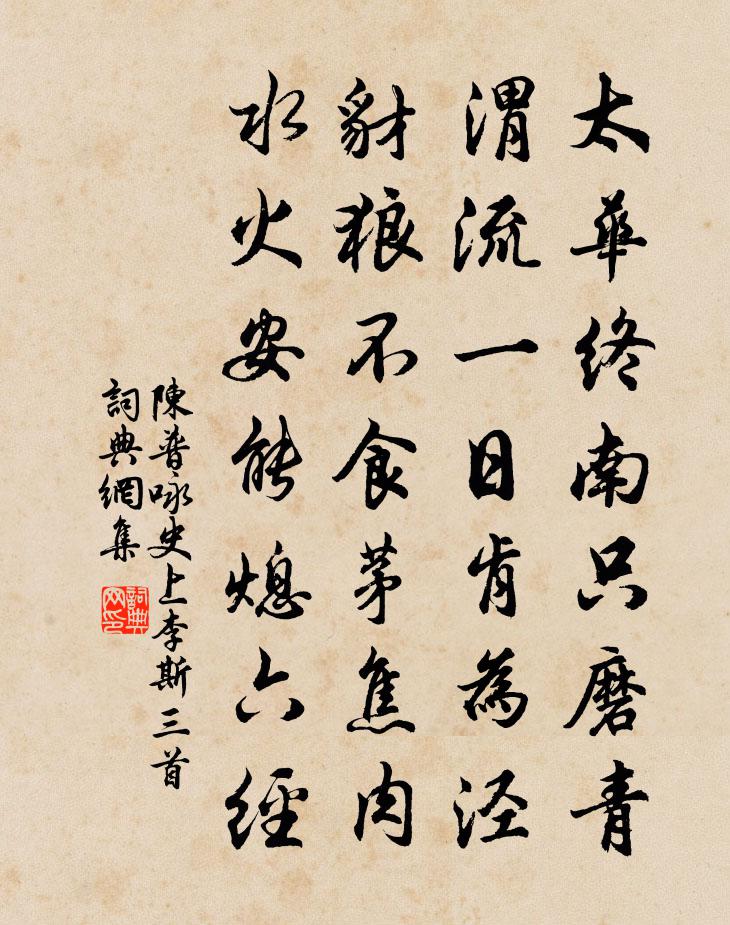 太華終南只磨青
渭流一日肯為泾
豺狼不食茅焦肉
水火安能熄六經
陳普咏史上李斯三首
詞典網集
詞典
网印